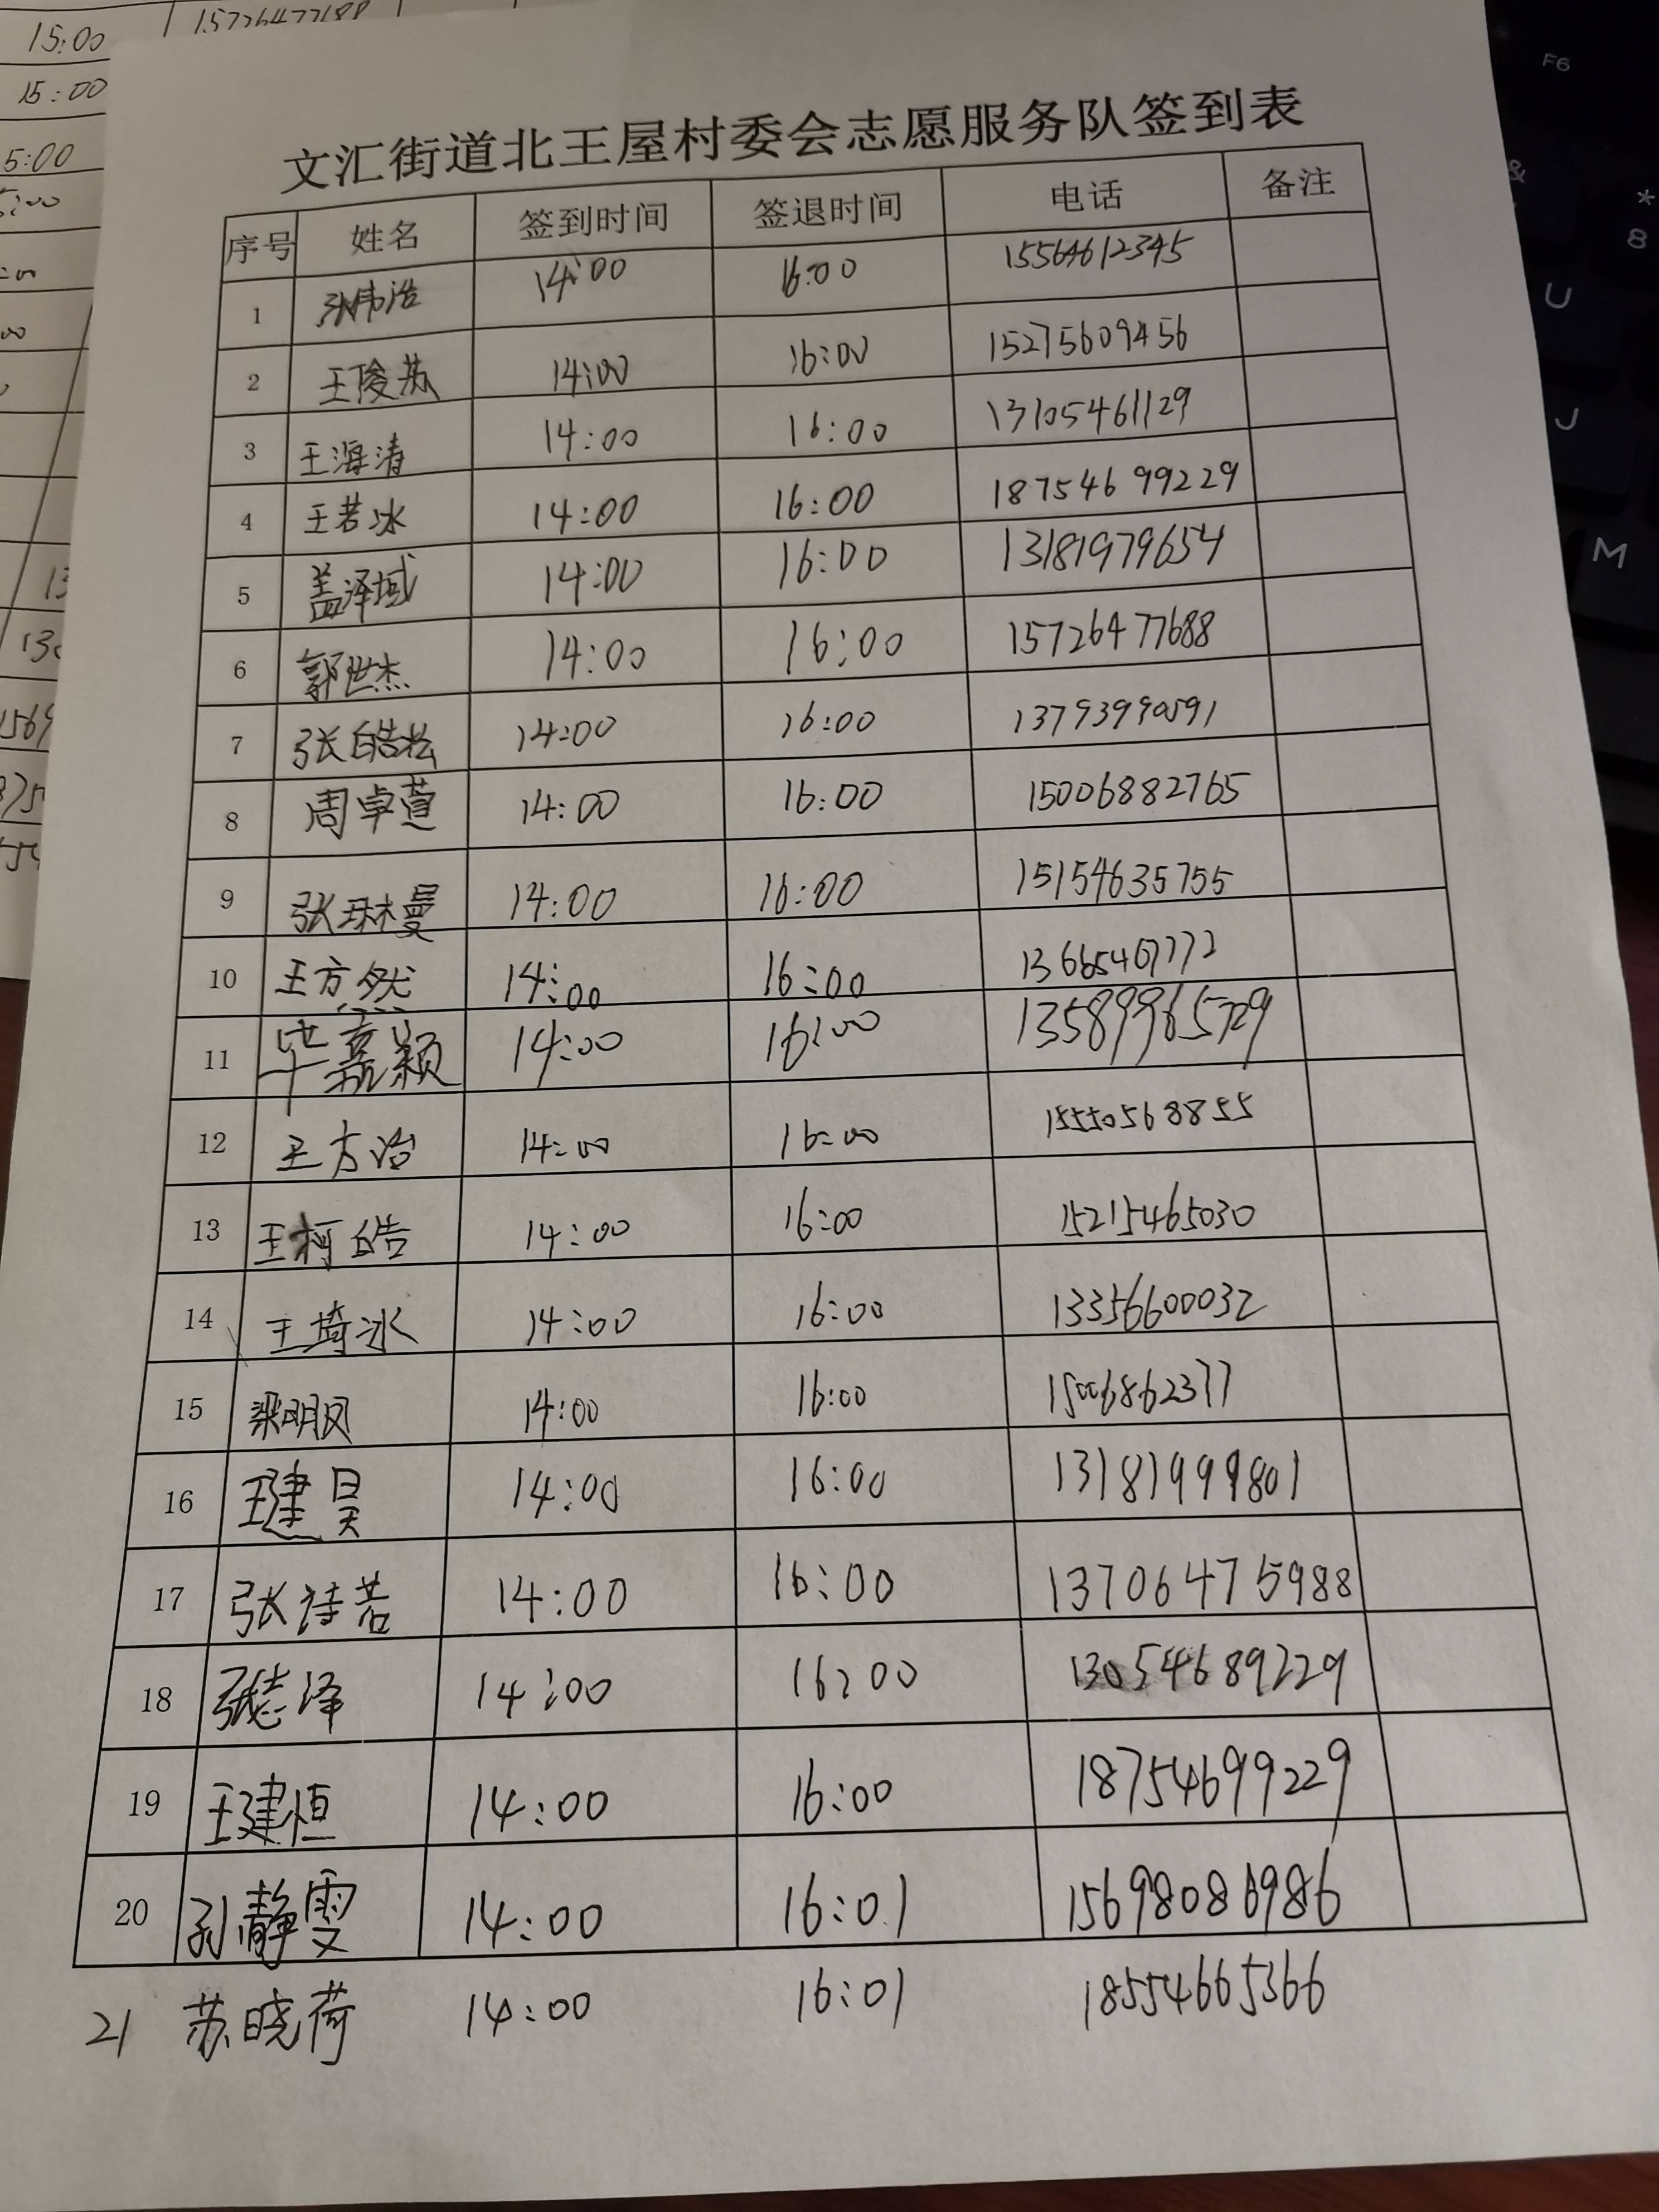 15:00 15726477188
15:00
5:00
文汇街道北王屋村委会志愿服务队签到表
序号 姓名 签到时间 签退时间 电话 备注
1 张伟浩 14:00 16:00 15564612345
2 王俊苏 14:00 16:00 15275609456
3 王海清 14:00 16:00 13105461129
4 王若冰 14:00 16:00 18754699229
5 盖泽域 14:00 16:00 13181979654
6 郭世杰 14:00 16:00 15726477688
7 张皓松 14:00 16:00 13793990591
8 周卓萱 14:00 16:00 15006882765
9 张琳曼 14:00 16:00 15154635755
10 王方然 14:00 16:00
11 毕嘉颖 14:00 16:00 13589965729
12 王方冶 14:00 16:00 15550568855
13 王柯皓 14:00 16:00 15215465030
14 王琦冰 14:00 16:00 13356600032
15 梁明凤 14:00 16:00 15006862377
16 王建昊 14:00 16:00 13181999801
17 张诗若 14:00 16:00 13706475988
18 张志泽 14:00 16:00 13054689229
19 王建恒 14:00 16:00 18754699229
20 孙静雯 14:00 16:01 15698086986
21 苏晓荷 14:00 16:01 18554665366
F6
&
*
8
U
J
M